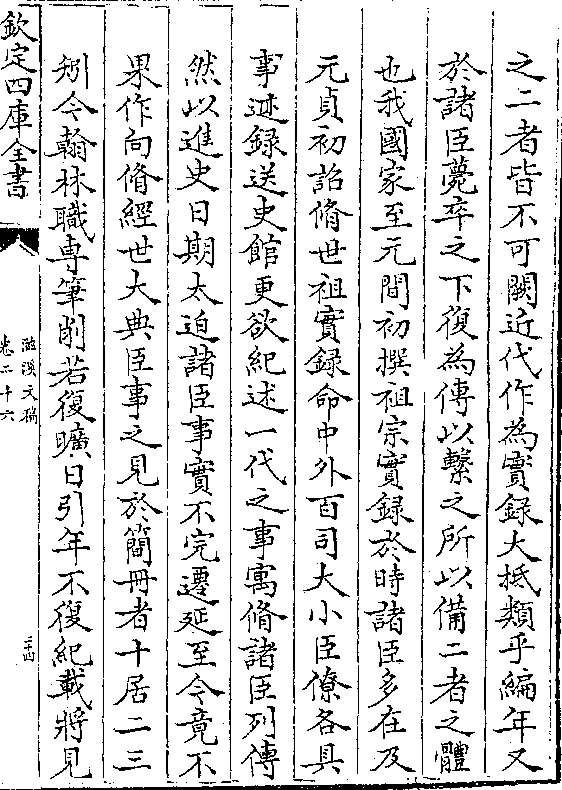 之二者皆不可闕近代作為實録大抵類乎編年又
於諸臣薨卒之下復為傳以繫之所以備二者之體
也我國家至元間初撰祖宗實録於時諸臣多在及
元貞初詔脩世祖實録命中外百司大小臣僚各具
事迹録送史館更欲紀述一代之事寓脩諸臣列傳
然以進史日期太迫諸臣事實不完遷延至今竟不
果作向脩經世大典臣事之見於簡冊者十居二三
矧今翰林職専筆削若復曠日引年不復紀載將見
欽定四庫全書
滋溪文稿
卷二十六
三十四